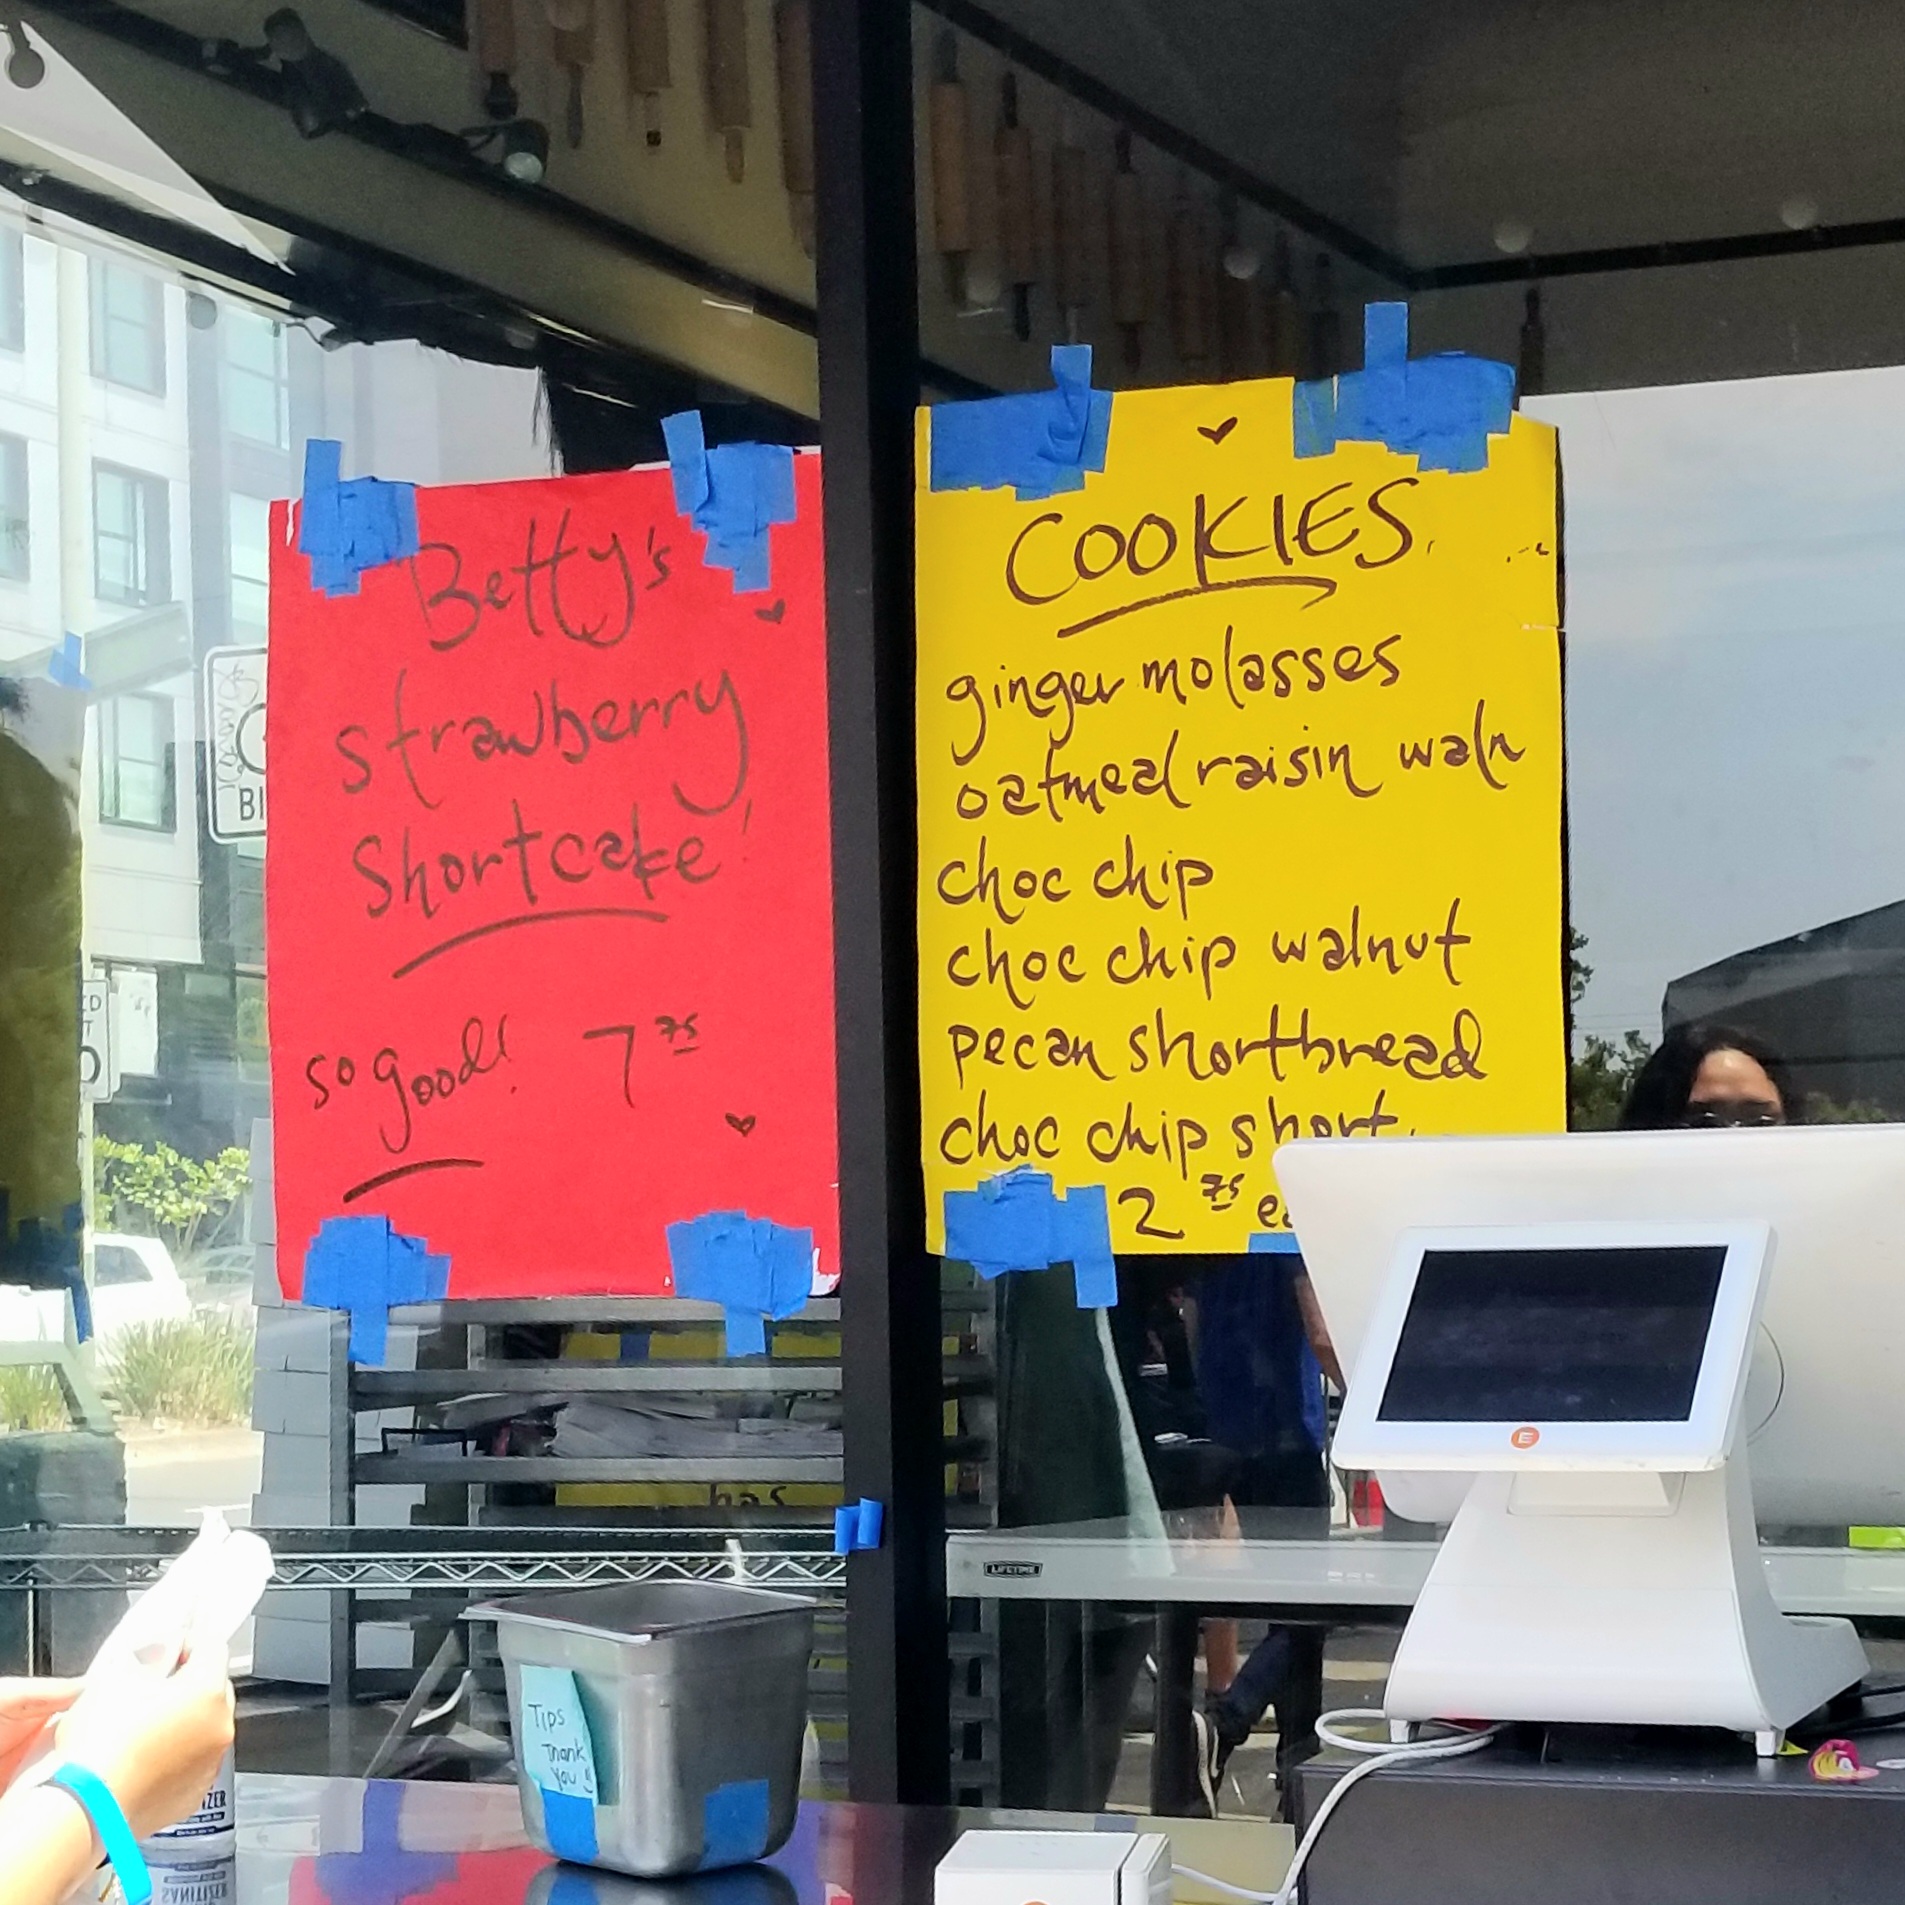 Betty's
strawberry
Shortcake!
so good! 7 75
COOKIES
ginger molasses
oatmeal raisin waln
choc chip
choc chip walnut
pecan shortbread
choc chip short.
2 75 ea
BI
has
LIFETIME
E
Tips
Thank
you!!
SANITIZER